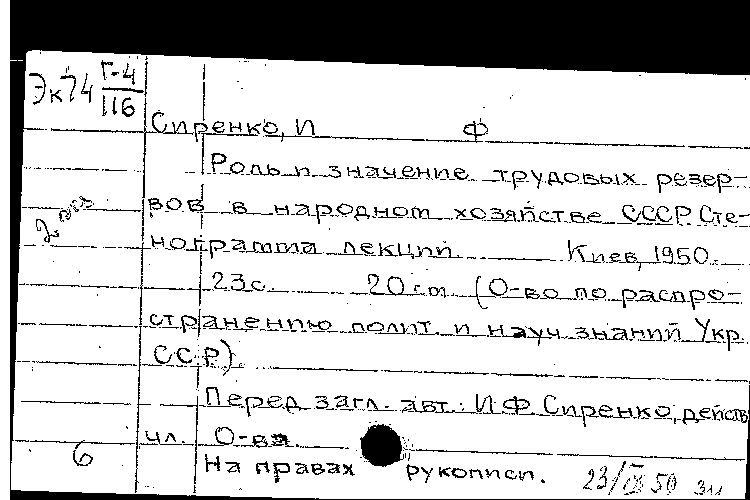 Эк74 Г-4
116
Сиренко, И Ф
Роль и значение трудовых резер-
вов в народном хозяйстве СССР. Сте-
2 экз
нограмма лекций. Киев, 1950.
23с. 20 см. (О-во по распро-
странению полит. и науч. знаний Укр.
ССР).
Перед загл. авт.: И.Ф. Сиренко, действ
чл. О-ва.
6
На правах рукописи. 23/IX 50